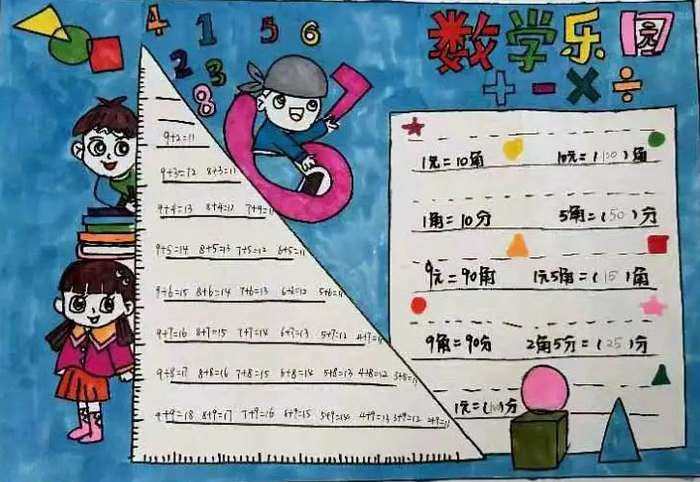 4 1 5 6
2 3
8
数学乐园
+ - × ÷
9+2=11
9+3=12 8+3=11
9+4=13 8+4=12 7+4=11
9+5=14 8+5=13 7+5=12 6+5=11
9+6=15 8+6=14 7+6=13 6+6=12 5+6=11
9+7=16 8+7=15 7+7=14 6+7=13 5+7=12 4+7=11
9+8=17 8+8=16 7+8=15 6+8=14 5+8=13 4+8=12 3+8=11
9+9=18 8+9=17 7+9=16 6+9=15 5+9=14 4+9=13 3+9=12 2+9=11
1元=10角 10元=(100)角
1角=10分 5角=(50)分
9元=90角 1元5角=(15)角
9角=90分 2角5分=(25)分
1元=(100)分